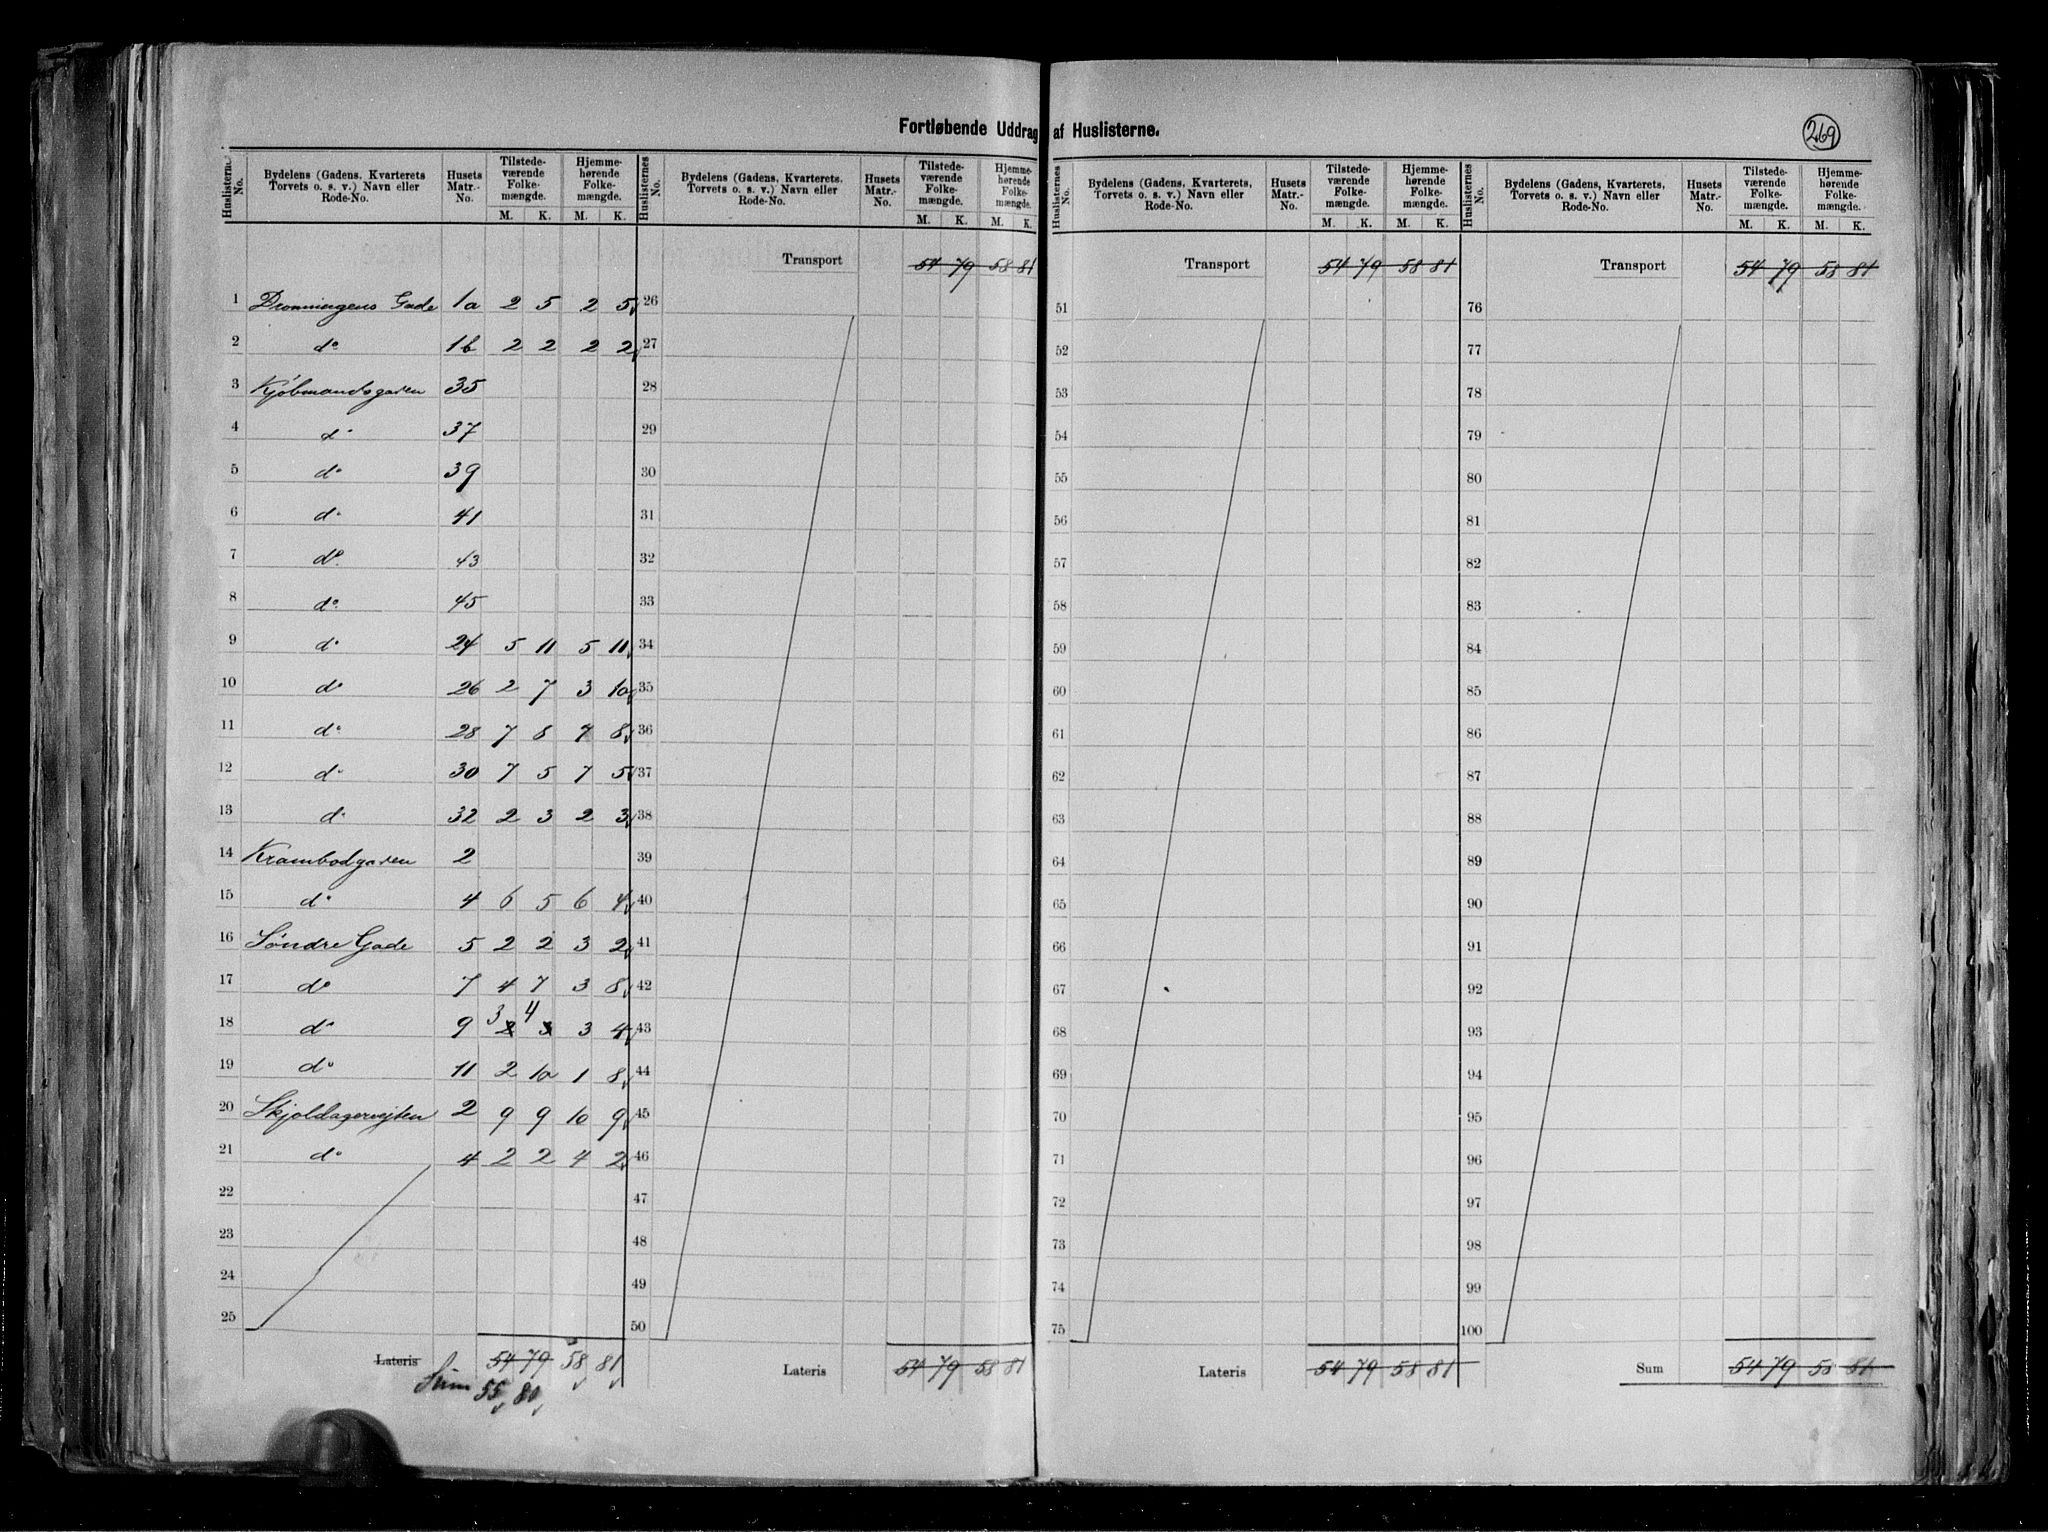 Fortløbende Uddrag af Huslisterne.
269
Huslisternes No. | Bydelens (Gadens, Kvarterets, Torvets o. s. v.) Navn eller Rode-No. | Husets Matr.-No. | Tilstedeværende Folkemængde. M. K. | Hjemmehørende Folkemængde. M. K.
1 Dronningens Gade 1a 2 5 2 5
2 do 1b 2 2 2 2
3 Kjøbmandsgaden 35
4 do 37
5 do 39
6 do 41
7 do. 43
8 do. 45
9 do 24 5 11 5 11
10 do 26 2 7 3 10
11 do 28 7 8 7 8
12 do 30 7 5 7 5
13 do 32 2 3 2 3
14 Krambodgaden 2
15 do 4 6 5 6 4
16 Søndre Gade 5 2 2 3 2
17 do 7 4 7 3 8
18 do 9 3 2 4 3 3 4
19 do 11 2 10 1 8
20 Skjoldagervejten 2 9 9 10 9
21 do 4 2 2 4 2
22
23
24
25
Lateris 54 79 58 81
Sum 55 81
Huslisternes No. | Bydelens (Gadens, Kvarterets. Torvets o. s. v.) Navn eller Rode-No. | Husets Matr.-No. | Tilstedeværende Folkemængde. M. K. | Hjemmehørende Folkemængde. M. K.
Transport 54 79 58 81
26
27
28
29
30
31
32
33
34
35
36
37
38
39
40
41
42
43
44
45
46
47
48
49
50
Lateris 54 79 58 81
Huslisternes No. | Bydelens (Gadens, Kvarterets, Torvets o. s. v.) Navn eller Rode-No. | Husets Matr.-No. | Tilstedeværende Folkemængde. M. K. | Hjemmehørende Folkemængde. M. K.
Transport 54 79 58 81
51
52
53
54
55
56
57
58
59
60
61
62
63
64
65
66
67
68
69
70
71
72
73
74
75
Lateris 54 79 58 81
Huslisternes No. | Bydelens (Gadens, Kvarterets, Torvets o. s. v.) Navn eller Rode-No. | Husets Matr.-No. | Tilstedeværende Folkemængde. M. K. | Hjemmehørende Folkemængde. M. K.
Transport 54 79 58 81
76
77
78
79
80
81
82
83
84
85
86
87
88
89
90
91
92
93
94
95
96
97
98
99
100
Sum 54 79 58 81